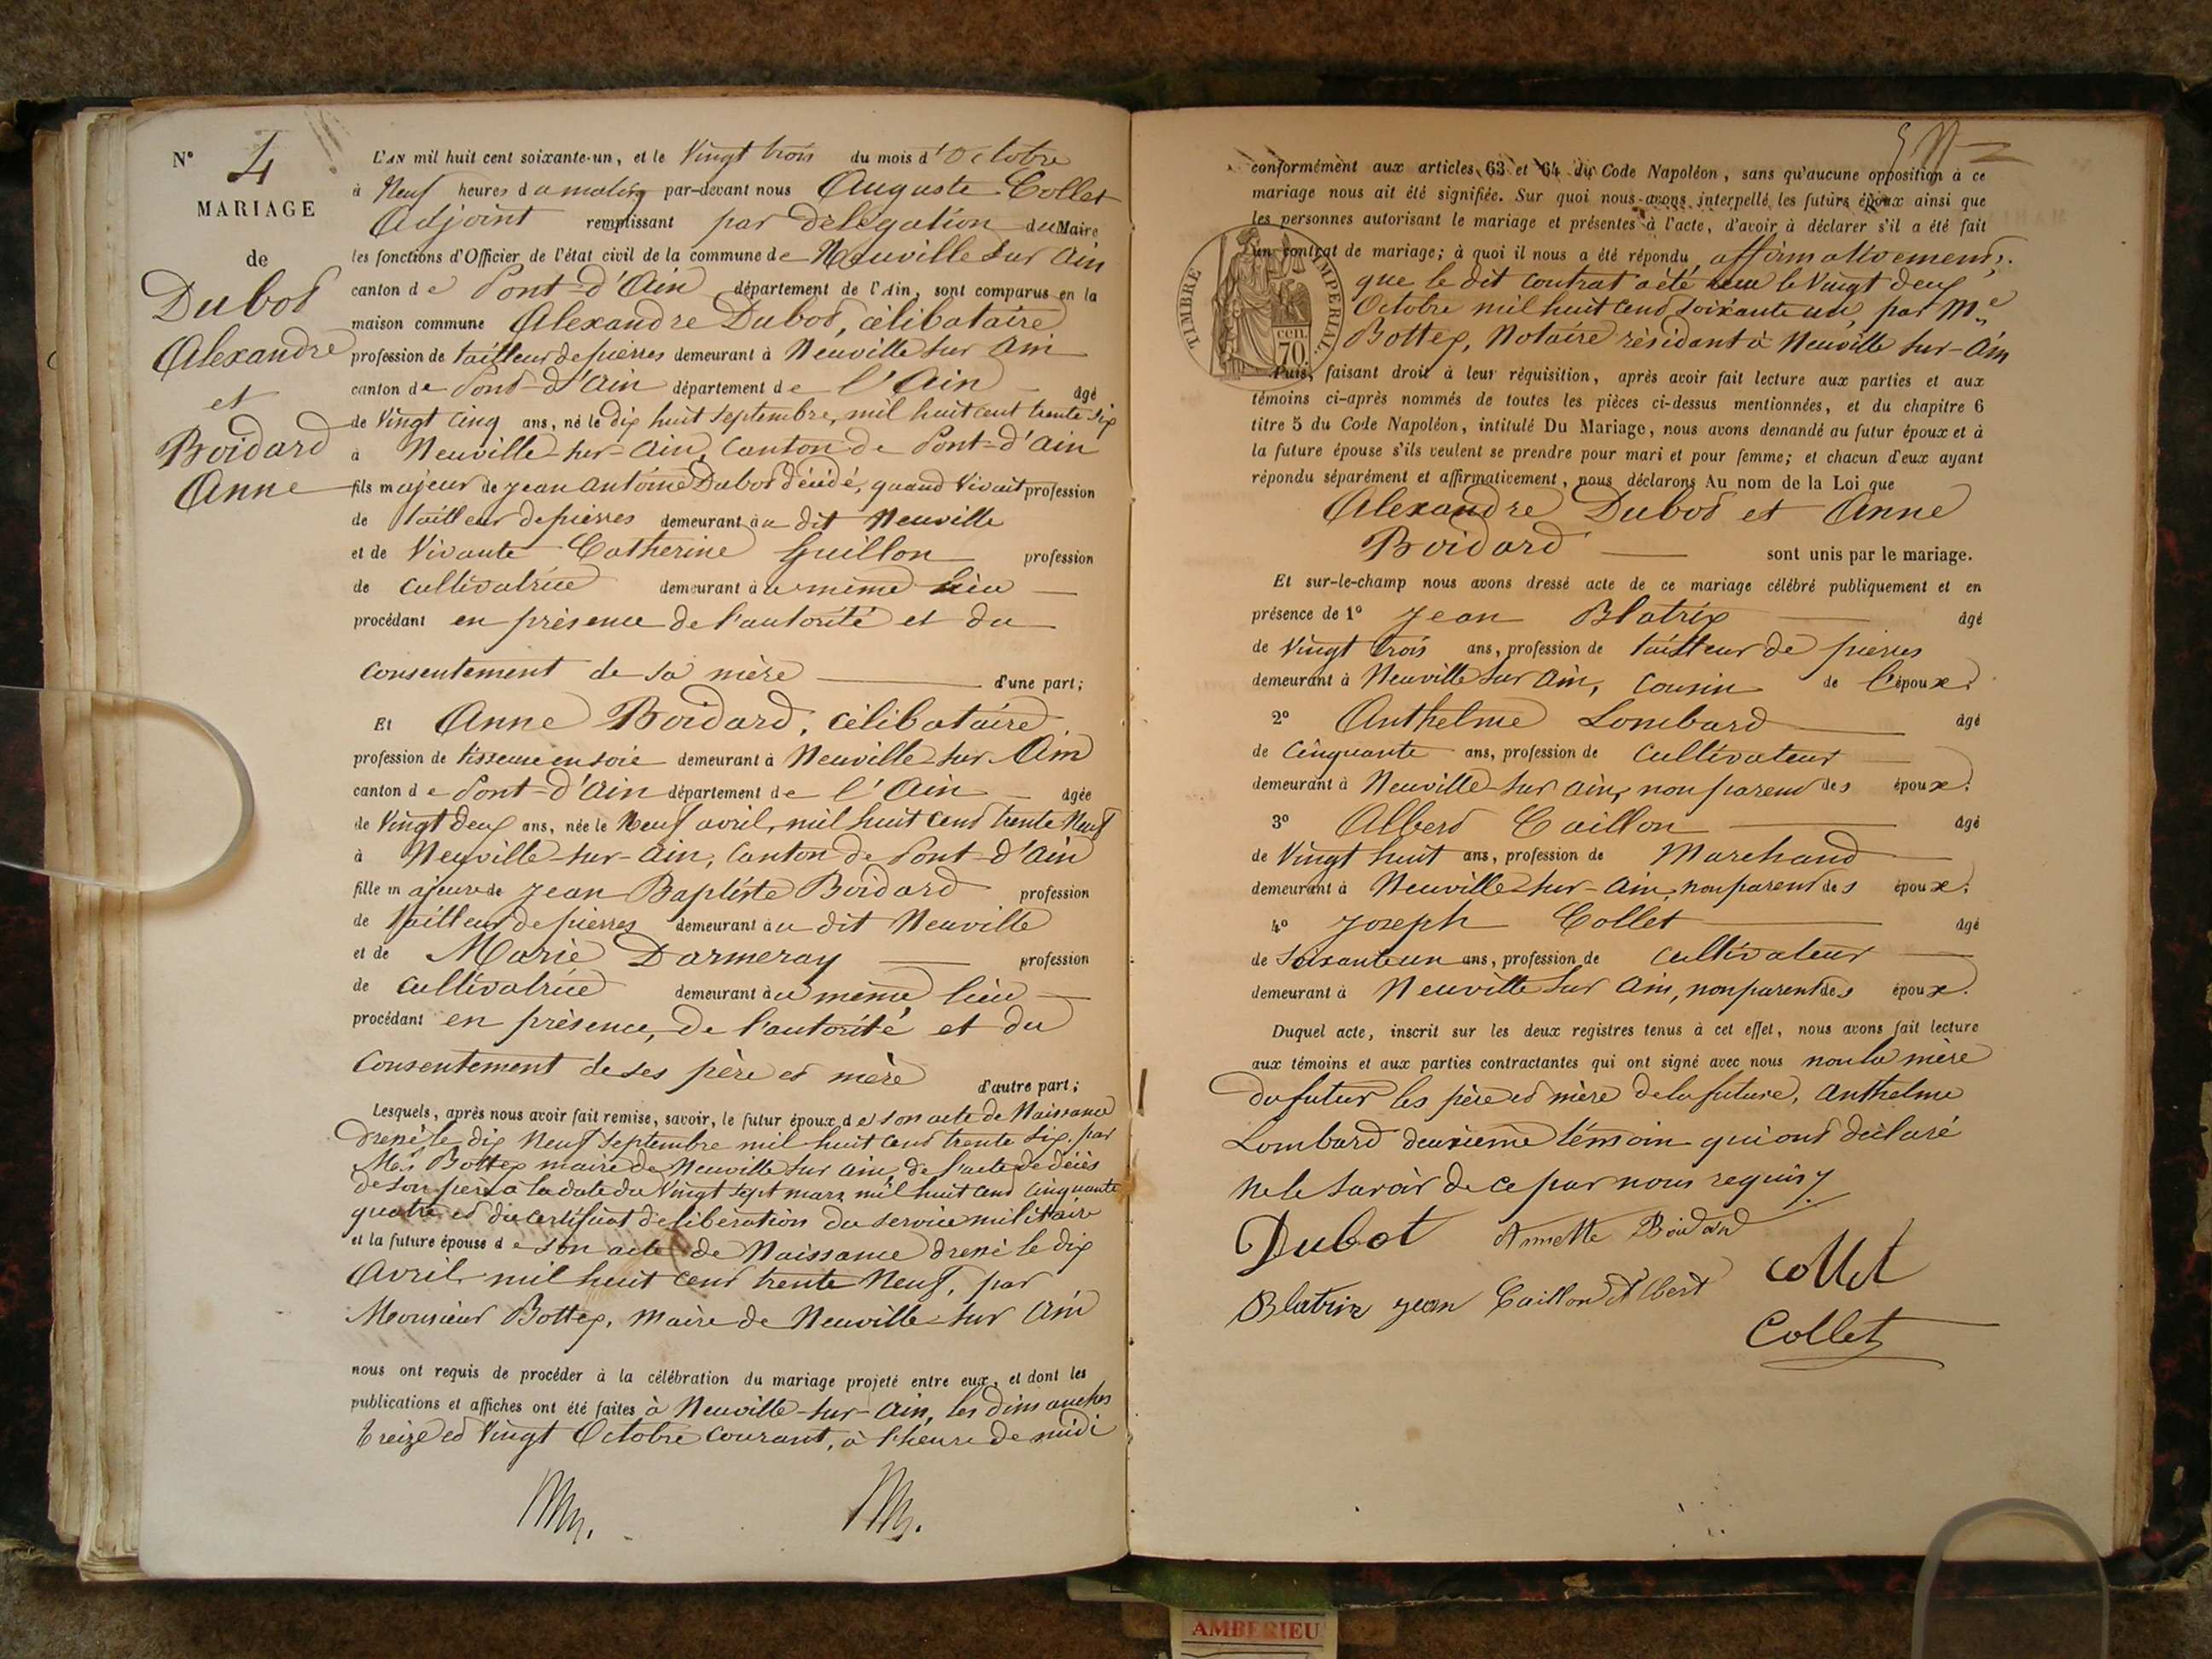 N° 4
MARIAGE
de
Dubot
Alexandre
et
Boidard
Anne
L'AN mil huit cent soixante-un, et le Vingt trois du mois d'Octobre
à Neuf heures du matin par-devant nous Auguste Collet
Adjoint remplissant par délégation du Maire
les fonctions d'Officier de l'état civil de la commune de Neuville sur Ain
canton de Pont-d'Ain département de l'Ain, sont comparus en la
maison commune Alexandre Dubot, célibataire
profession de tailleur de pierres demeurant à Neuville sur Ain
canton de Pont-d'Ain département de l'Ain âgé
de Vingt cinq ans, né le dix huit septembre, mil huit cent trente six
à Neuville-sur-Ain, canton de Pont-d'Ain
fils majeur de Jean Antoine Dubot décédé, quand vivait profession
de tailleur de pierres demeurant au dit Neuville
et de Vivante Catherine Guillon profession
de cultivatrice demeurant au même lieu
procédant en présence de l'autorité et du
consentement de sa mère d'une part;
Et Anne Boidard, célibataire
profession de tisseuse en soie demeurant à Neuville sur Ain
canton de Pont-d'Ain département de l'Ain âgée
de Vingt deux ans, née le Neuf avril, mil huit cent trente Neuf
à Neuville-sur-Ain, canton de Pont-d'Ain
fille majeure de Jean Baptiste Boidard profession
de tailleur de pierres demeurant au dit Neuville
et de Marie Darmeray profession
de cultivatrice demeurant au même lieu
procédant en présence, de l'autorité et du
consentement de ses père et mère d'autre part;
Lesquels, après nous avoir fait remise, savoir, le futur époux de son acte de Naissance
dressé le dix Neuf septembre mil huit cent trente six, par
Mr Bottex maire de Neuville sur Ain, de l'acte de décès
de son père à la date du Vingt sept mars mil huit cent cinquante
quatre et du certificat de libération du service militaire
et la future épouse de son acte de Naissance dressé le dix
Avril mil huit cent trente Neuf, par
Monsieur Bottex, maire de Neuville-sur Ain
nous ont requis de procéder à la célébration du mariage projeté entre eux, et dont les
publications et affiches ont été faites à Neuville-sur-Ain, les dimanches
treize et Vingt Octobre courant, à l'heure de midi
conformément aux articles 63 et 64 du Code Napoléon, sans qu'aucune opposition à ce
mariage nous ait été signifiée. Sur quoi nous avons interpellé les futurs époux ainsi que
les personnes autorisant le mariage et présentes à l'acte, d'avoir à déclarer s'il a été fait
un contrat de mariage; à quoi il nous a été répondu affirmativement,
que le dit contrat a été reçu le Vingt deux
Octobre mil huit cent soixante un, par Me
Bottex, Notaire résidant à Neuville sur-Ain
TIMBRE IMPERIAL
cen
70.
Puis, faisant droit à leur réquisition, après avoir fait lecture aux parties et aux
témoins ci-après nommés de toutes les pièces ci-dessus mentionnées, et du chapitre 6
titre 5 du Code Napoléon, intitulé Du Mariage, nous avons demandé au futur époux et à
la future épouse s'ils veulent se prendre pour mari et pour femme; et chacun d'eux ayant
répondu séparément et affirmativement, nous déclarons Au nom de la Loi que
Alexandre Dubot et Anne
Boidard sont unis par le mariage.
Et sur-le-champ nous avons dressé acte de ce mariage célébré publiquement et en
présence de 1° Jean Blatrix âgé
de Vingt trois ans, profession de tailleur de pierres
demeurant à Neuville sur Ain, cousin de l'époux.
2° Anthelme Lombard âgé
de Cinquante ans, profession de cultivateur
demeurant à Neuville-sur Ain, non parent des époux.
3° Albert Caillon âgé
de Vingt huit ans, profession de Marchand
demeurant à Neuville-sur-Ain, non parent des époux.
4° Joseph Collet âgé
de Soixante un ans, profession de cultivateur
demeurant à Neuville sur Ain, non parent des époux.
Duquel acte, inscrit sur les deux registres tenus à cet effet, nous avons fait lecture
aux témoins et aux parties contractantes qui ont signé avec nous non la mère
du futur les père et mère de la future, Anthelme
Lombard deuxième témoin qui ont déclaré
ne le savoir de ce par nous requis
Dubot Annette Boidard
Collet
Blatrix Jean Caillon Albert
Collet
AMBERIEU